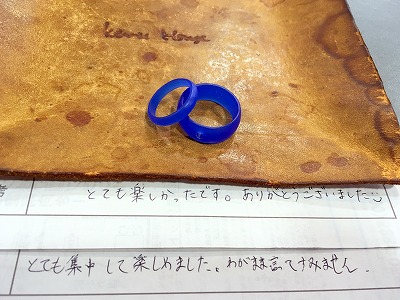 とても楽しかったです。ありがとうございました
とても集中して楽しめました。わがまま言てすみません.